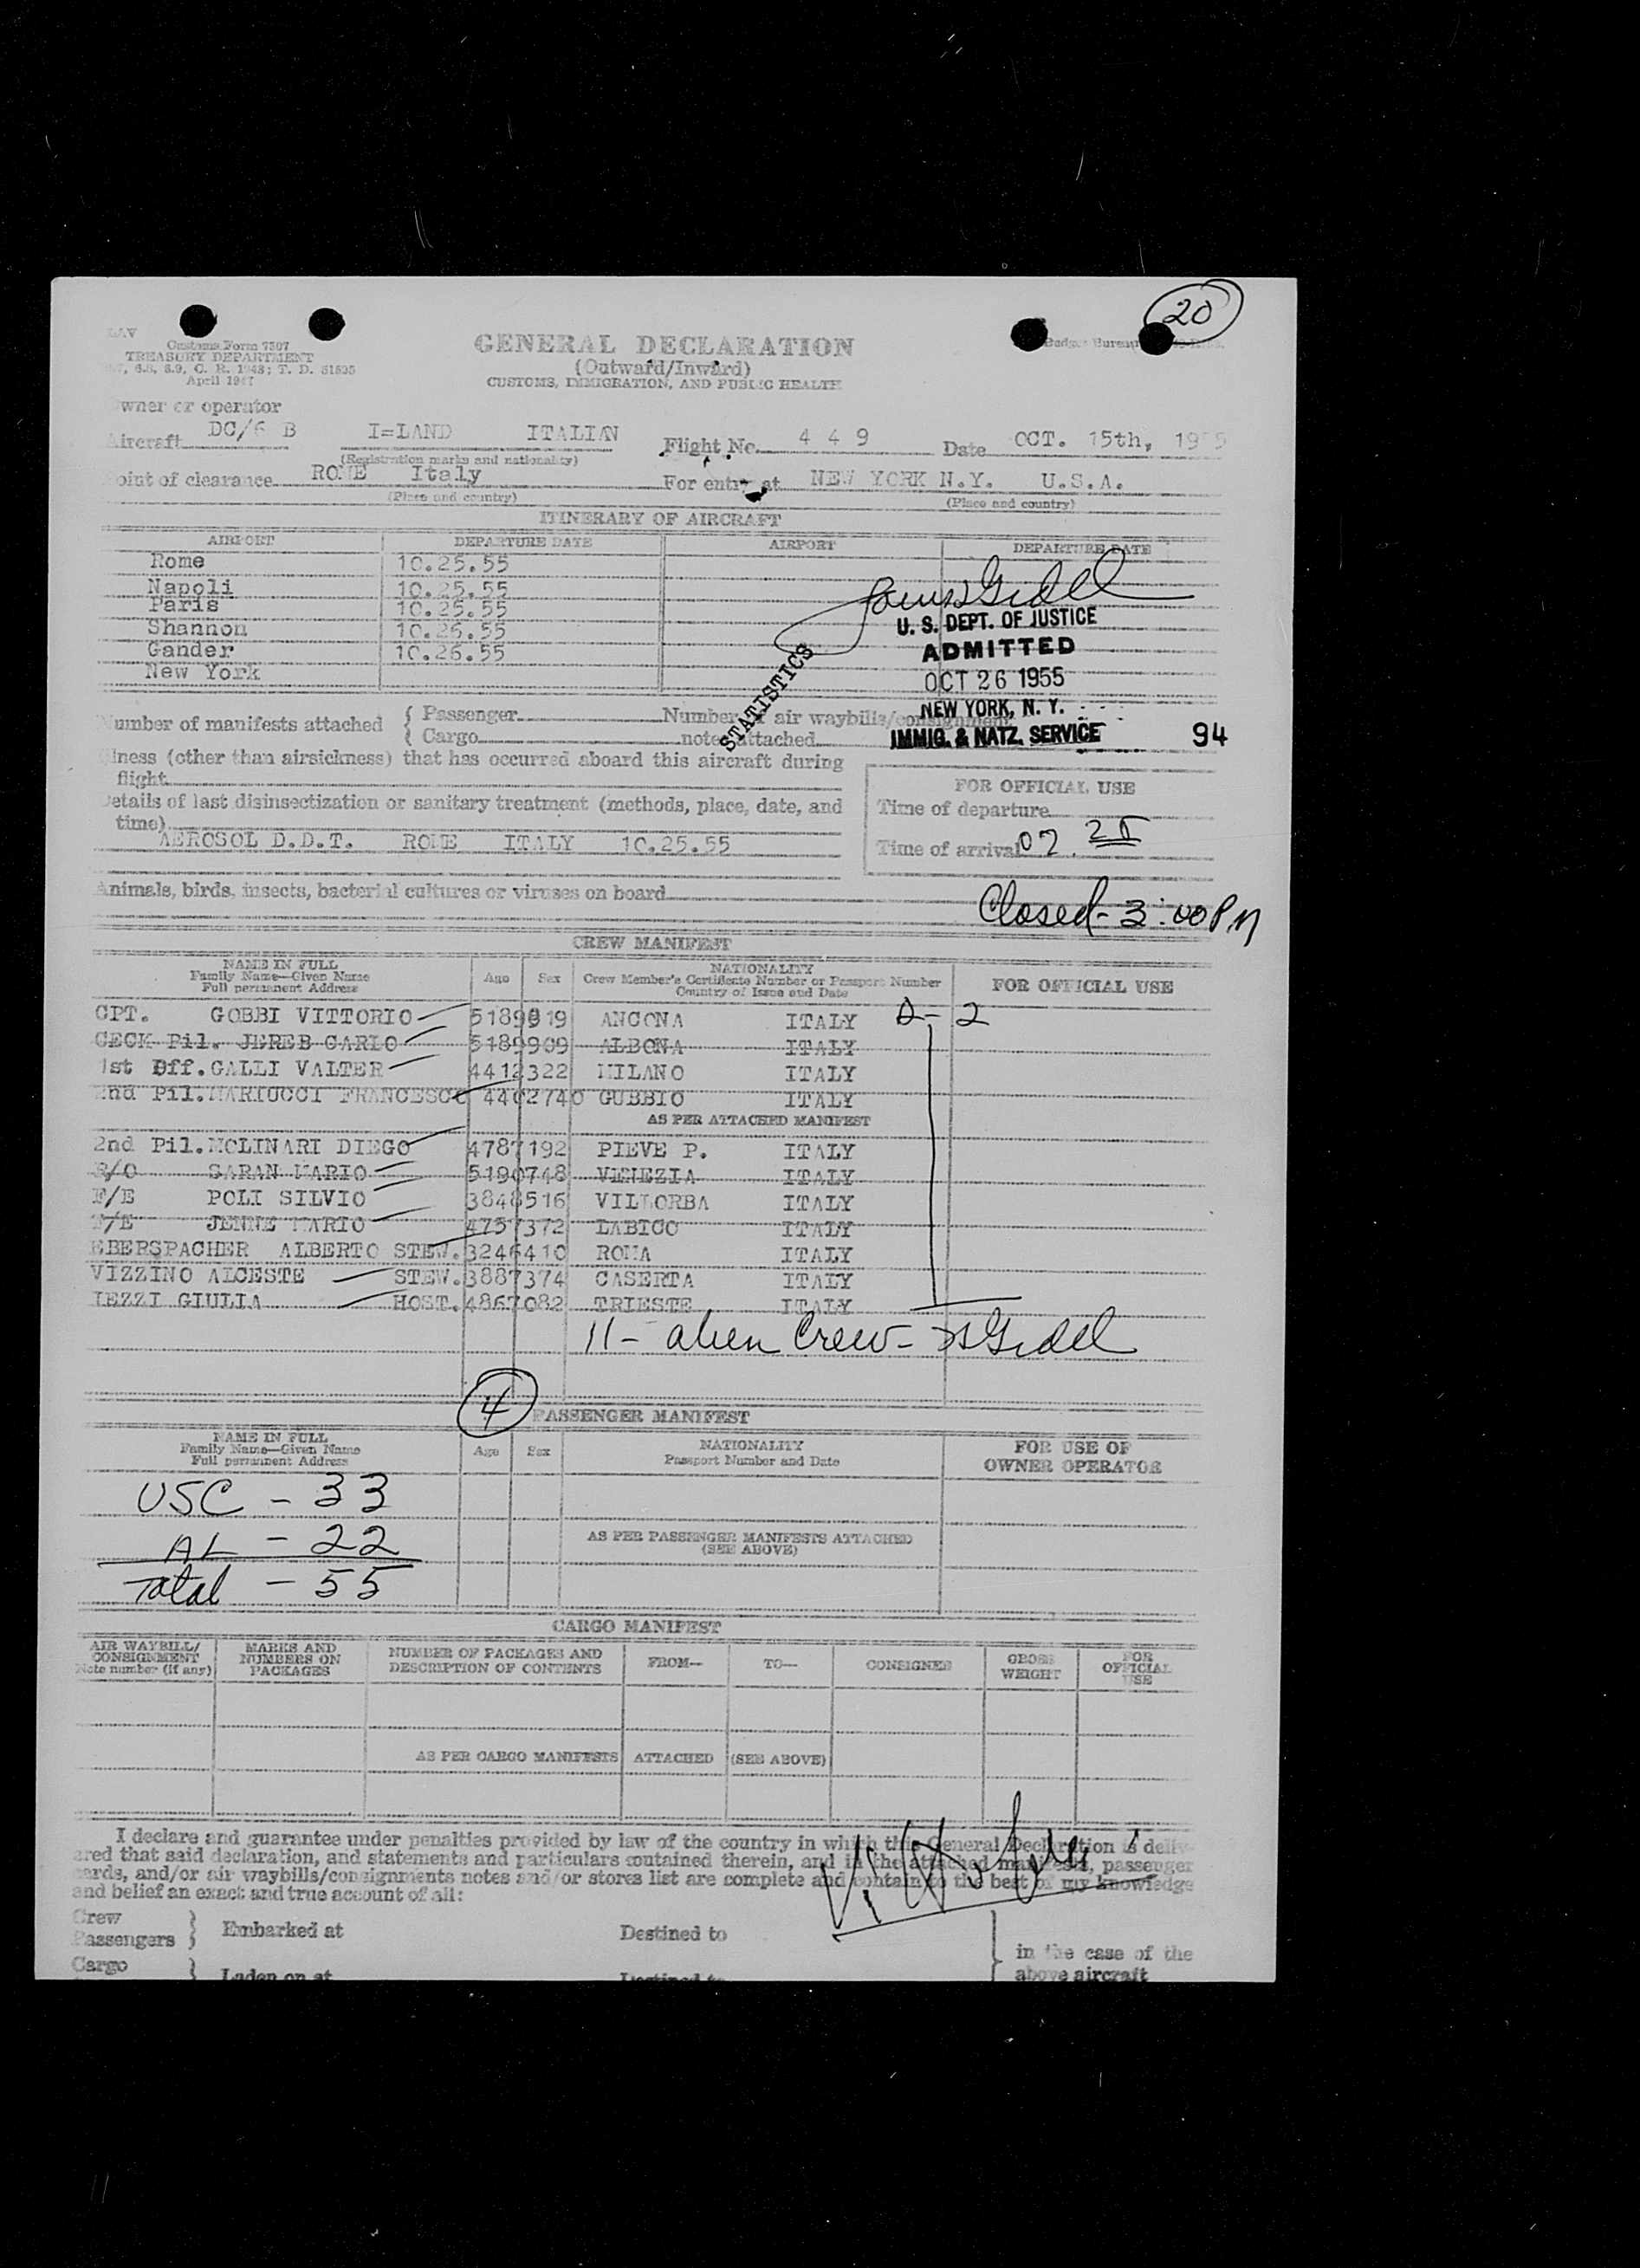 20
LAV
Customs Form 7507
TREASURY DEPARTMENT
6.8, 8.9, C. R. 1943; T. D. 51835
April 1947
GENERAL DECLARATION
(Outward/Inward)
CUSTOMS, IMMIGRATION, AND PUBLIC HEALTH
Budget Bureau
wner or operator
Aircraft DC/6 B I=LAND ITALIAN Flight No. 4 4 9 Date OCT. 15th, 1955
(Registration marks and nationality)
oint of clearance ROME Italy For entry at NEW YORK N.Y. U.S.A.
(Place and country) (Place and country)
ITINERARY OF AIRCRAFT
AIRPORT DEPARTURE DATE AIRPORT DEPARTURE DATE
Rome 10.25.55
Napoli 10.25.55
Paris 10.25.55
Shannon 10.26.55
Gander 10.26.55
New York
U. S. DEPT. OF JUSTICE
ADMITTED
OCT 26 1955
NEW YORK, N. Y.
IMMIG. & NATZ. SERVICE 94
STATISTICS
umber of manifests attached { Passenger Number of air waybills/consignment
{ Cargo notes attached
lness (other than airsickness) that has occurred aboard this aircraft during
flight
etails of last disinsectization or sanitary treatment (methods, place, date, and
time)
AEROSOL D.D.T. ROME ITALY 10.25.55
FOR OFFICIAL USE
Time of departure
Time of arrival 07.25
Animals, birds, insects, bacterial cultures or viruses on board
Closed - 3:00 PM
CREW MANIFEST
NAME IN FULL
Family Name—Given Name
Full permanent Address
Age Sex
NATIONALITY
Crew Member's Certificate Number or Passport Number
Country of Issue and Date
FOR OFFICIAL USE
CPT. GOBBI VITTORIO 5189919 ANCONA ITALY D-2
CECK Pil. JEREB CARLO 5189909 ALBONA ITALY
1st Off. GALLI VALTER 4412322 MILANO ITALY
2nd Pil. MARIUCCI FRANCESCO 4402740 GUBBIO ITALY
AS PER ATTACHED MANIFEST
2nd Pil. MOLINARI DIEGO 4787192 PIEVE P. ITALY
R/O SARAN MARIO 5190748 VENEZIA ITALY
F/E POLI SILVIO 3848516 VILLORBA ITALY
F/E JENNE MARIO 4757372 LABICO ITALY
EBERSPACHER ALBERTO STEW. 3246410 ROMA ITALY
VIZZINO ALCESTE STEW. 3887374 CASERTA ITALY
IEZZI GIULIA HOST. 4867082 TRIESTE ITALY
11 - alien Crew -
4
PASSENGER MANIFEST
NAME IN FULL
Family Name—Given Name
Full permanent Address
Age Sex
NATIONALITY
Passport Number and Date
FOR USE OF
OWNER OPERATOR
USC - 33
AL - 22
Total - 55
AS PER PASSENGER MANIFESTS ATTACHED
(SEE ABOVE)
CARGO MANIFEST
AIR WAYBILL/
CONSIGNMENT
Note number (if any)
MARKS AND
NUMBERS ON
PACKAGES
NUMBER OF PACKAGES AND
DESCRIPTION OF CONTENTS
FROM—
TO—
CONSIGNEE
GROSS
WEIGHT
FOR
OFFICIAL
USE
AS PER CARGO MANIFESTS ATTACHED (SEE ABOVE)
I declare and guarantee under penalties provided by law of the country in which this General Declaration is deliv-
ered that said declaration, and statements and particulars contained therein, and in the attached manifests, passenger
cards, and/or air waybills/consignments notes and/or stores list are complete and contain to the best of my knowledge
and belief an exact and true account of all:
Crew
Passengers } Embarked at Destined to
in the case of the
Cargo } Laden on at Destined to
above aircraft